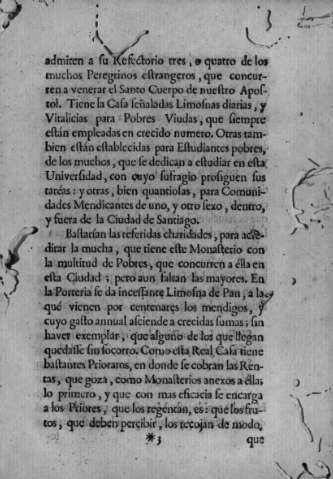 admiten a su Refectorio tres, o quatro de los
muchos Peregrinos estrangeros, que concur-
ren a venerar el Santo Cuerpo de nuestro Apos-
tol. Tiene la Casa señaladas Limosnas diarias, y
Vitalicias para Pobres Viudas, que siempre
están empleadas en crecido numero. Otras tam-
bien están establecidas para Estudiantes pobres,
de los muchos, que se dedican a estudiar en esta
Universidad, con cuyo sufragio prosiguen sus
taréas: y otras, bien quantiosas, para Comuni-
dades Mendicantes de uno, y otro sexo, dentro,
y fuera de la Ciudad de Santiago.
Bastarian las referidas charidades, para acre-
ditar la mucha, que tiene este Monasterio con
la multitud de Pobres, que concurren a élla en
esta Ciudad; pero aun faltan las mayores. En
la Porteria se da incessante Limosna de Pan, a la
qué vienen por centenares los mendigos, y
cuyo gasto annual asciende a crecidas sumas; sin
haver exemplar, que alguno de los que llegan
quedasse sin socorro. Como esta Real Casa tiene
bastantes Prioratos, en donde se cobran las Ren-
tas, que goza, como Monasterios anexos a élla;
lo primero, y que con mas eficacia se encarga
a los Priores, que los regentan, es: que los fru-
tos, que deben percibir, los recojan de modo,
*3 que